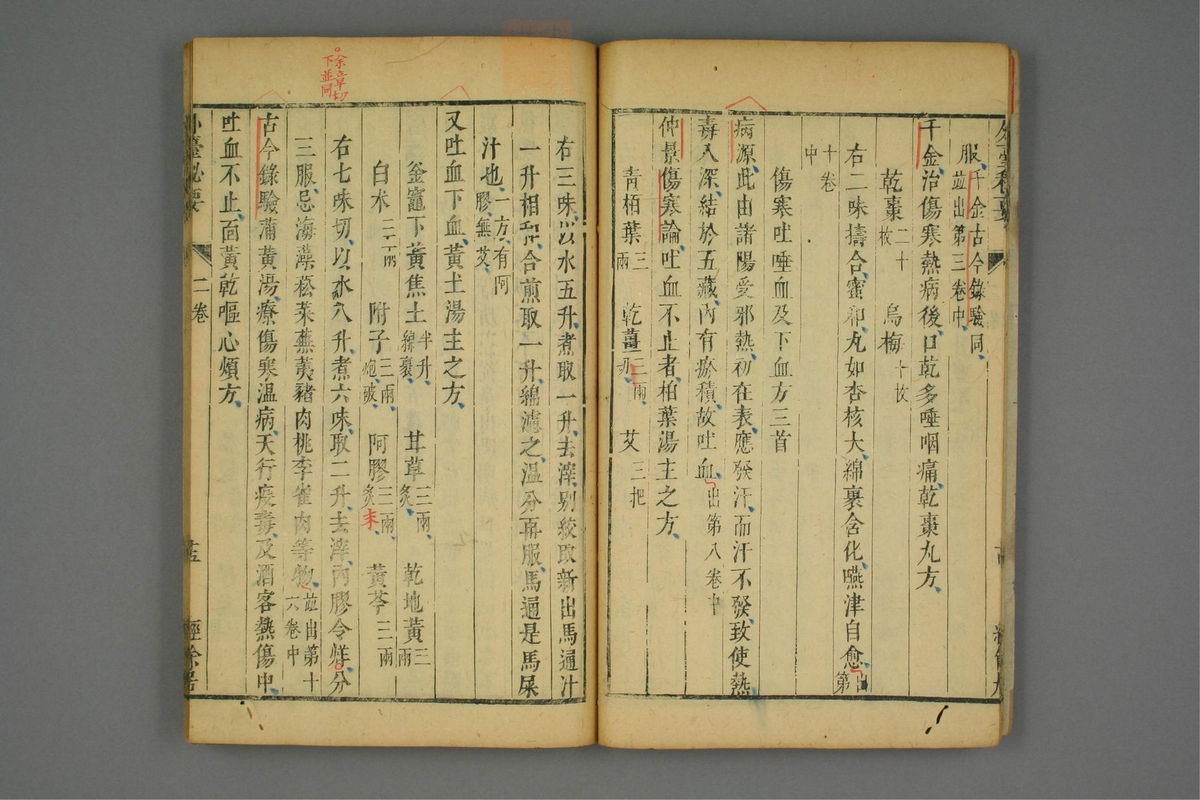 服千金古今錄驗同
並出第三卷中
千金治傷寒熱病後口乾多唾咽痛乾棗丸方
乾棗二十枚 烏梅十枚
右二味擣合蜜和丸如杏核大綿裹含化嚥津自愈出第
十卷中
傷寒吐唾血及下血方三首
病源此由諸陽受邪熱初在表應發汗而汗不發致使熱
毒入深結於五藏內有瘀積故吐血出第八卷中
仲景傷寒論吐血不止者柏葉湯主之方
青柏葉三兩 乾薑二兩 艾三把
右三味以水五升煮取一升去滓別絞取新出馬通汁
一升相和合煎取一升綿濾之溫分再服馬通是馬屎
汁也一方有阿膠無艾
又吐血下血黃土湯主之方
釜竈下黃焦土半升綿裹 甘草三兩炙 乾地黃三兩
白朮三兩 附子三兩炮破 阿膠三兩炙末 黃芩三兩
右七味切以水八升煮六味取二升去滓內膠令烊分
三服忌海藻菘菜蕪荑豬肉桃李雀肉等物並出第十六卷中
古今錄驗蒲黃湯療傷寒溫病天行疫毒及酒客熱傷中
吐血不止面黃乾嘔心煩方
余章切
下並同
二卷
經餘居